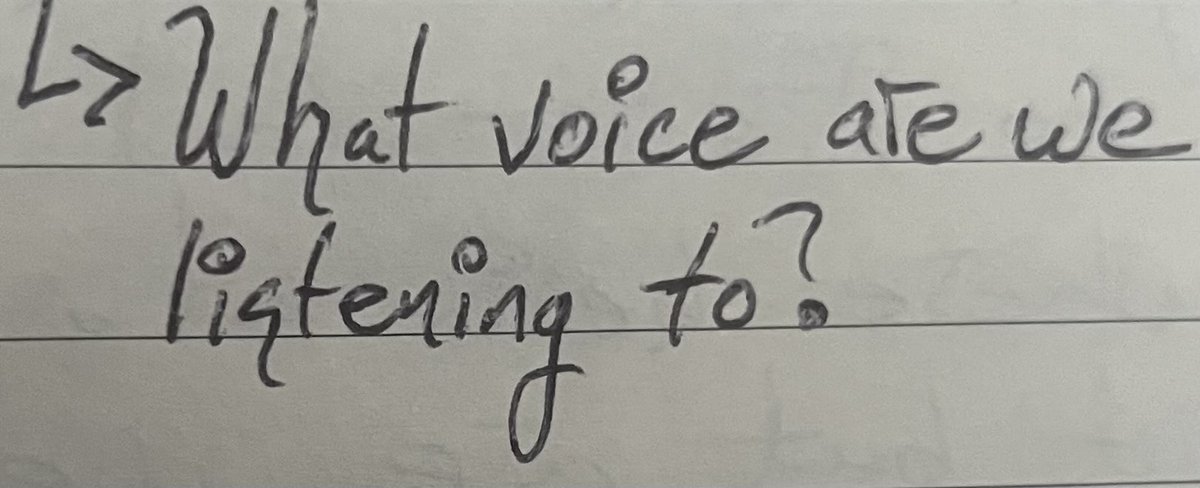 ↳ What voice are we
listening to?